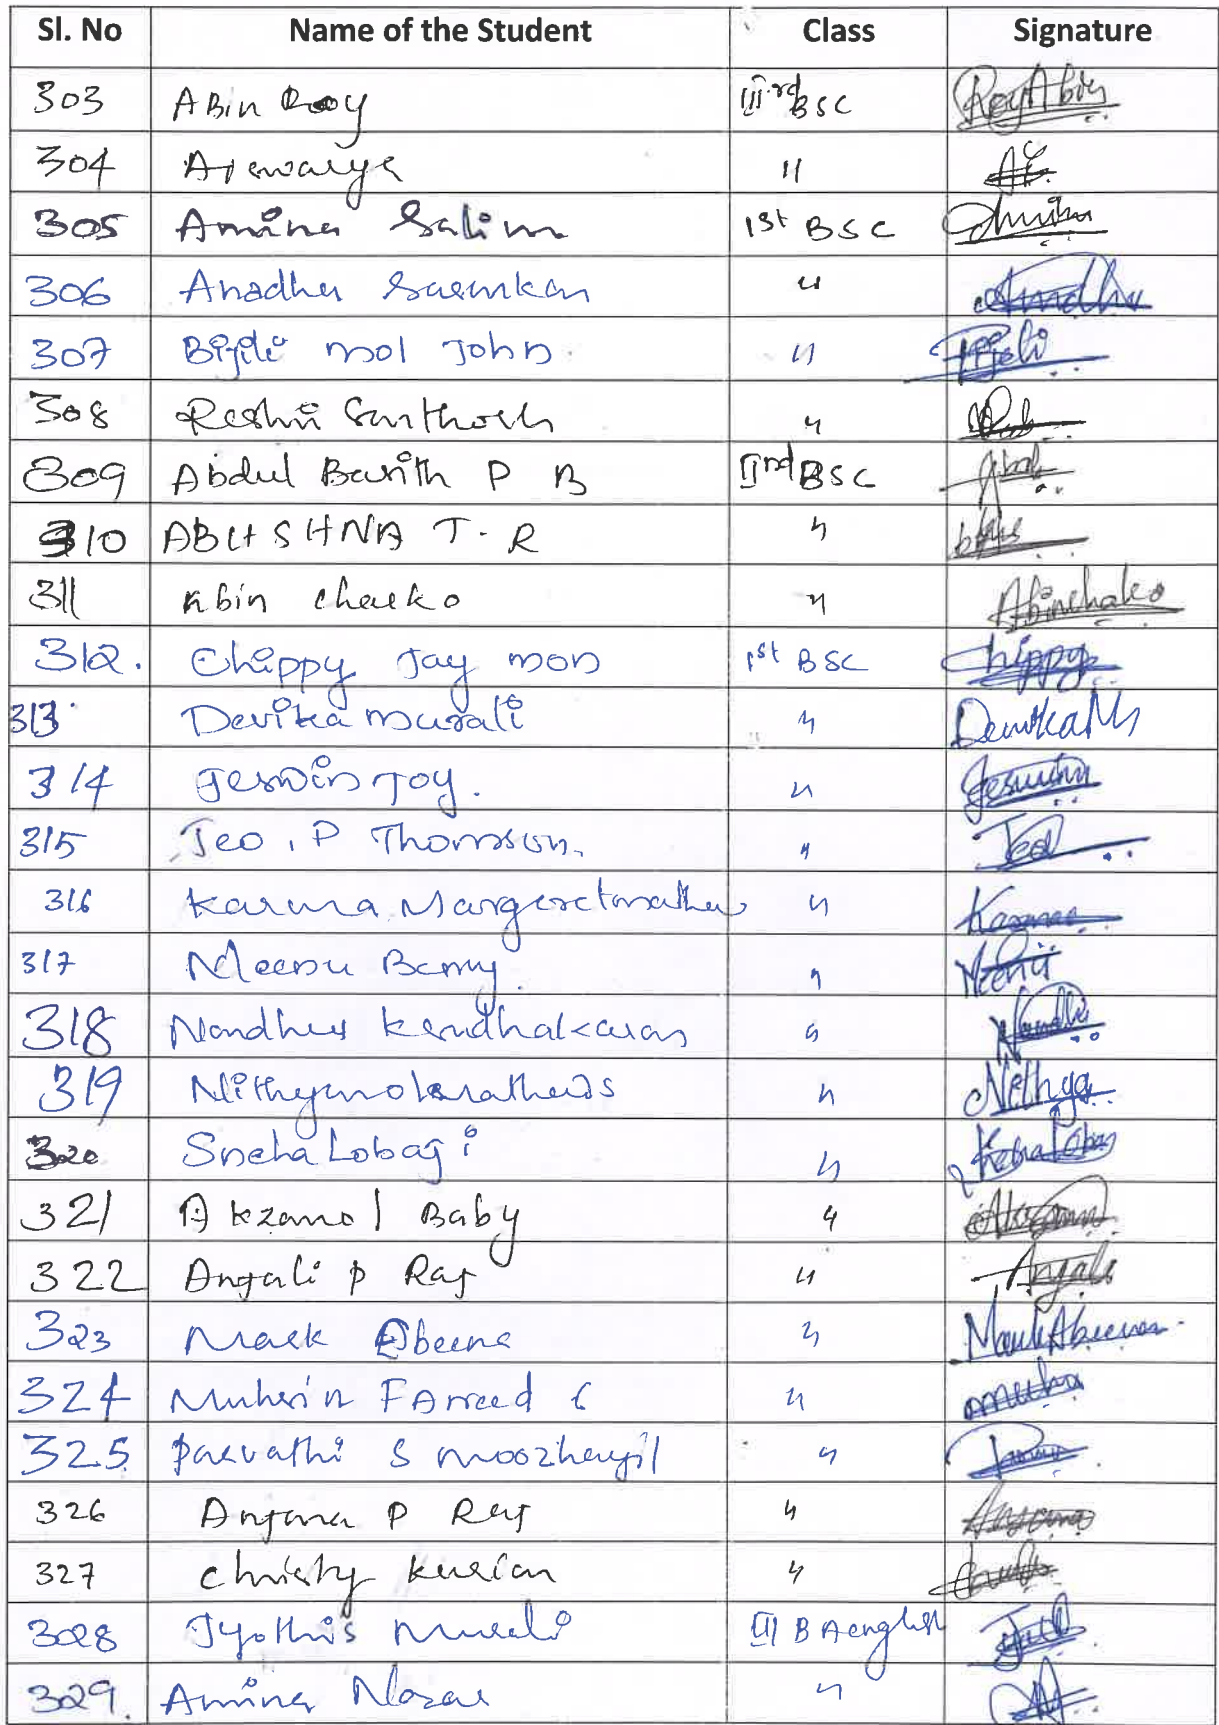 Sl. No Name of the Student Class Signature
303 Abin Roy III rd BSC RoyAbin
304 Aiswarya 11
305 Amina Salim 1st BSC
306 Anadhu Sasenkan 4
307 Bijili mol John. 4 Bijili
308 Reshni Santhosh 4
309 Abdul Barith P B II rd BSC
310 ABHISHNA T. R 4
311 Abin chacko 4 Abinchako
312. Chippy Jay mon 1st BSC Chippy
313 Devika murali 4 Devika M
314 Jeswin Joy. 4 Jeswin
315 Jeo . P Thomson. 4 Jeo
316 Karma Margeretmathew 4 Karma
317 Meenu Bamy 4 Meenu
318 Nandhu Kendhakaran 4 Nandhu
319 Nithyamolmathews 4 Nethya
320 Sneha Lobaji 4
321 Akzamol Baby 4
322 Anjali P Raj 4 Anjali
323 Mark Abeena 4 MarkAbeena
324 Muhsin FAmeed C 4
325 Parvathi S Moozhayil 4
326 Anjana P Raj 4 Anjana
327 Christy Kurian 4
3028 Jyothis Murali III B A english
329. Amina Nazar 4